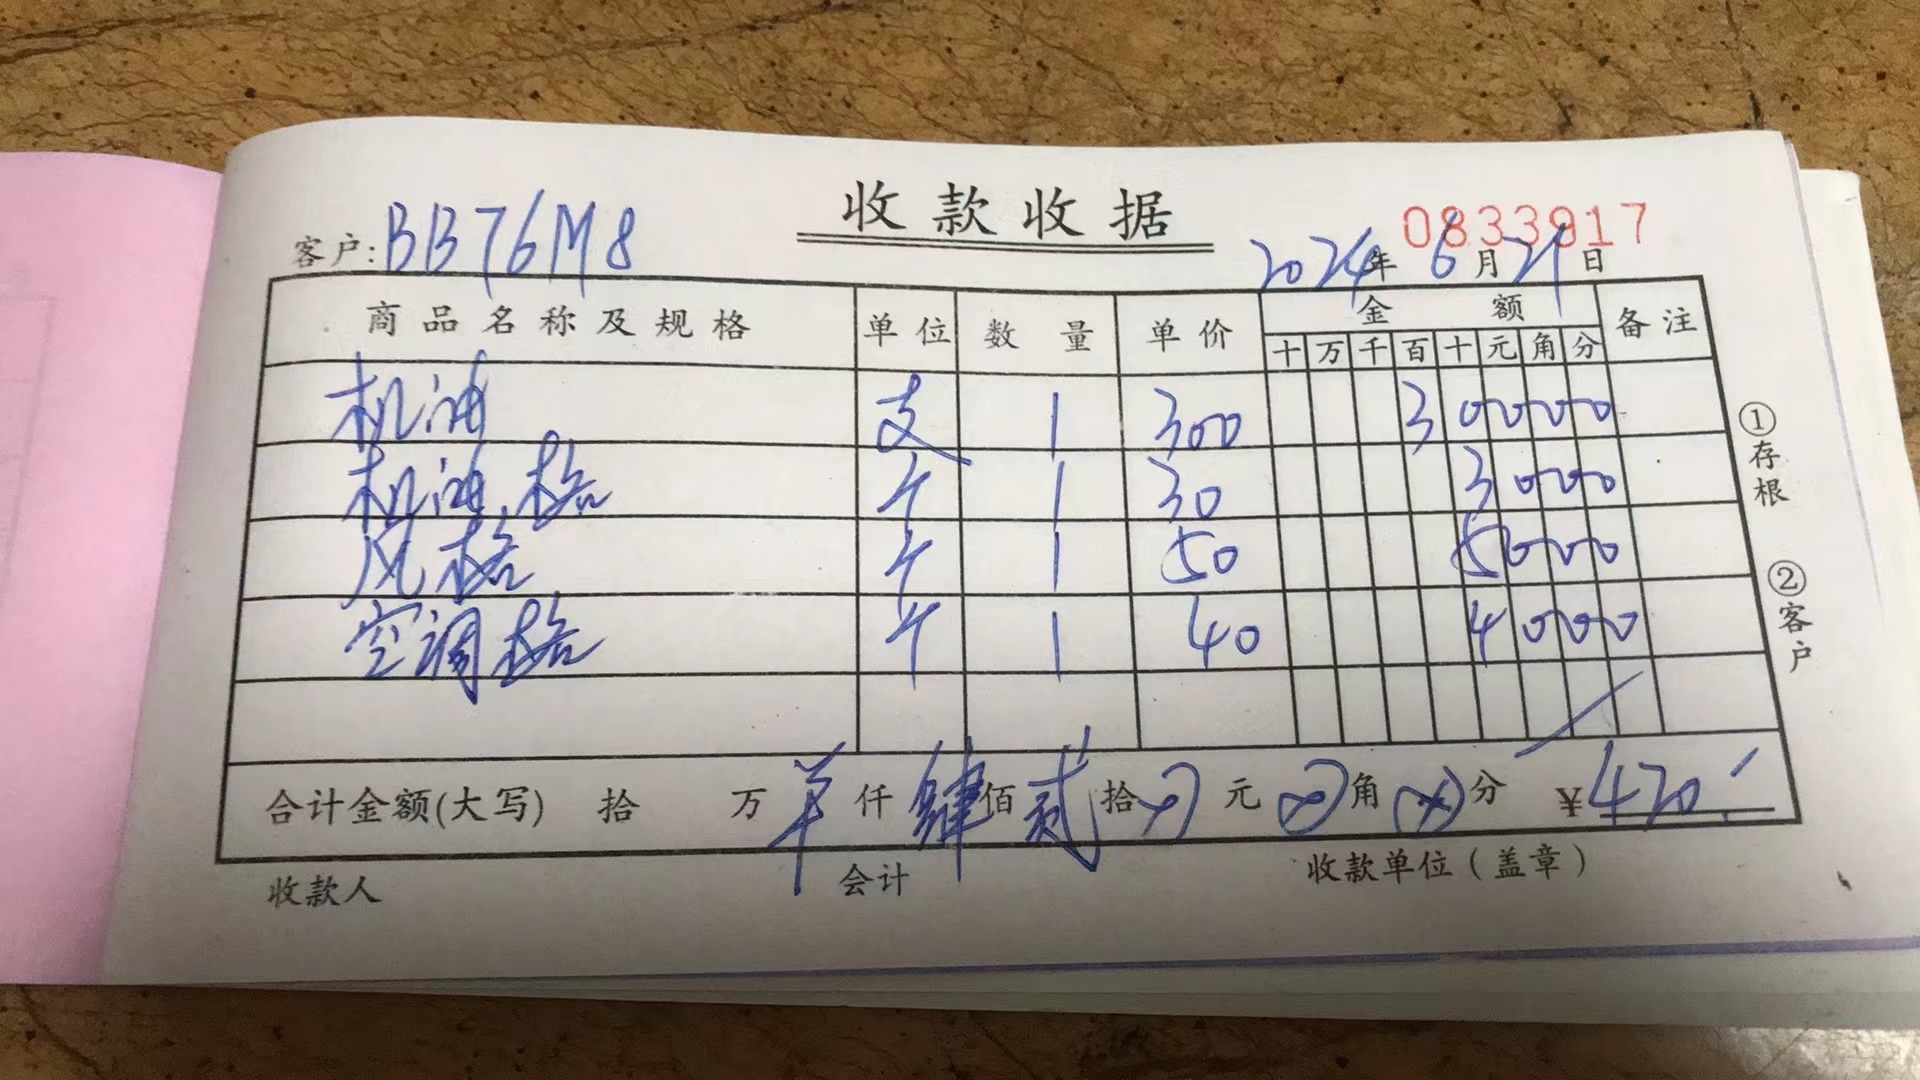 收款收据
0833917
客户: BB76M8 2024年6月21日
商品名称及规格 单位 数量 单价 金额 备注
十 万 千 百 十 元 角 分
机油 支 1 300 3 0 0 0 0
机油格 个 1 30 3 0 0 0
风格 个 1 50 5 0 0 0
空调格 个 1 40 4 0 0 0
合计金额(大写) 拾 万 仟 肆 佰 贰 拾 元 角 分 ¥420
收款人 会计 收款单位(盖章)
①存根
②客户